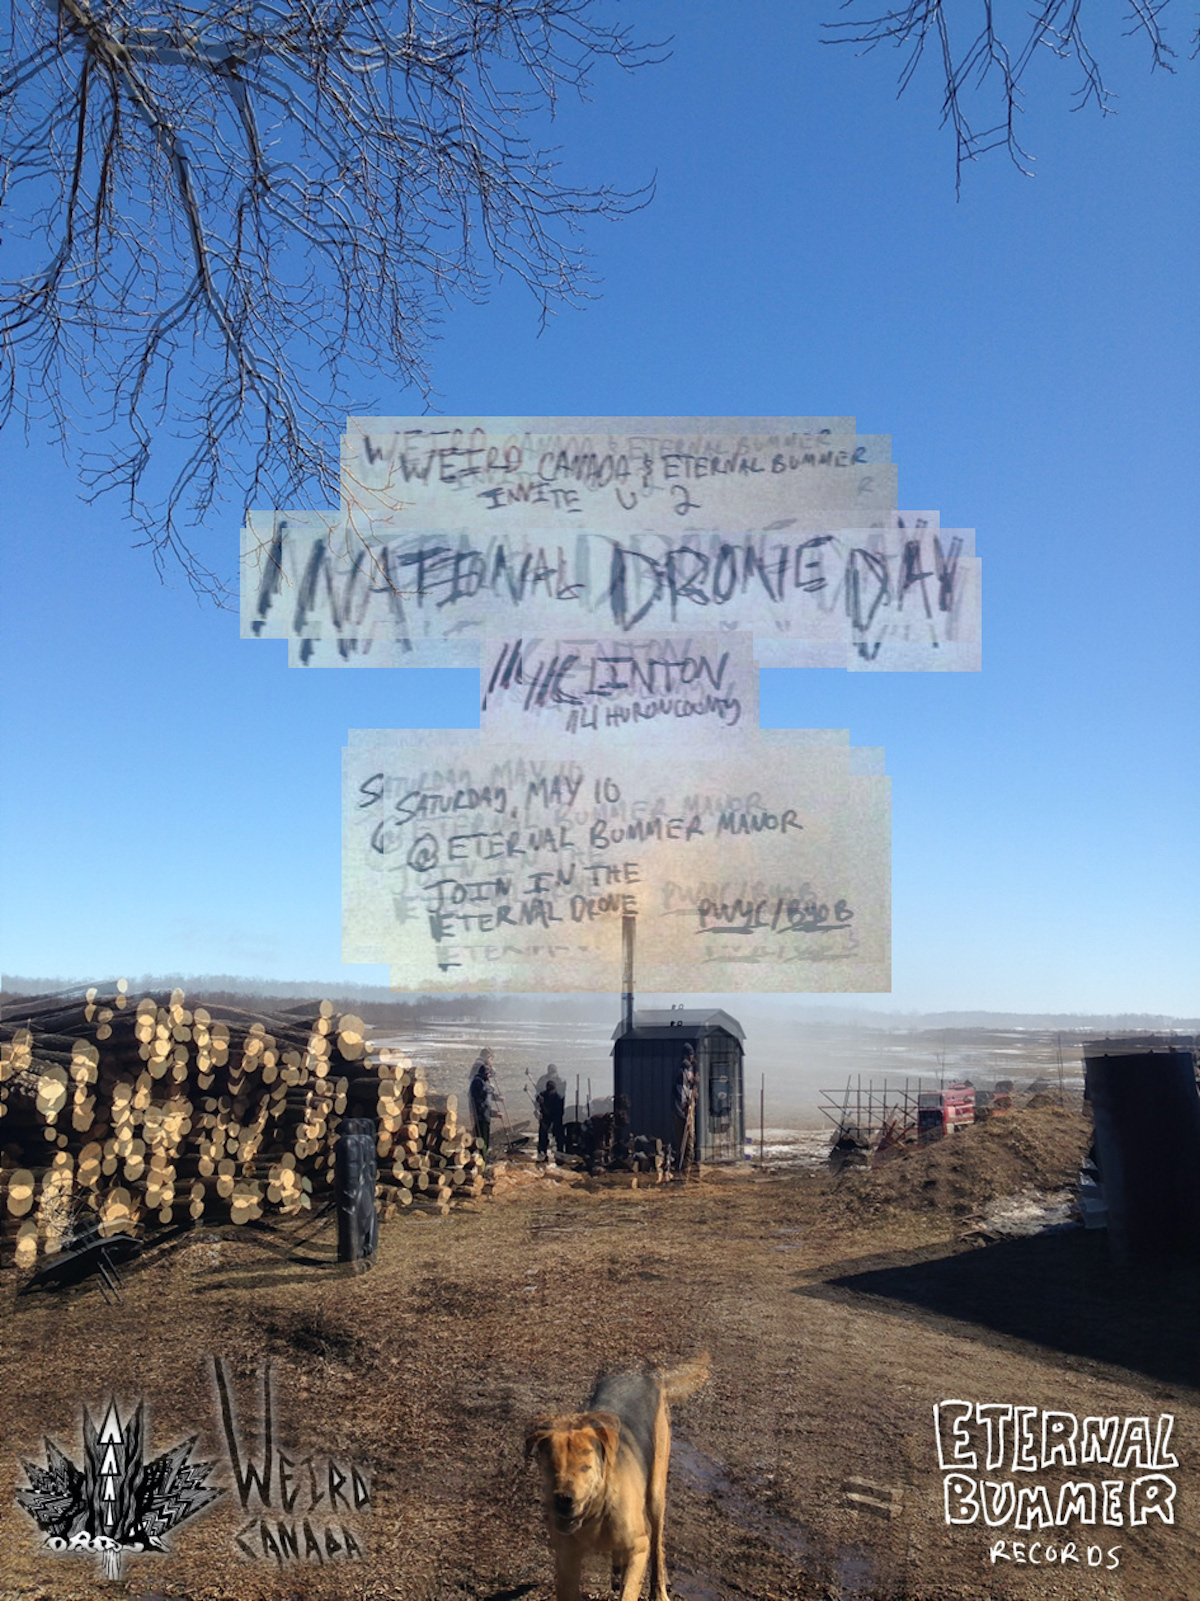 WEIRD CANADA & ETERNAL BUMMER
INVITE U 2
NATIONAL DRONE DAY
CLINTON
HURON COUNTY
SATURDAY, MAY 10
@ ETERNAL BUMMER MANOR
JOIN IN THE
ETERNAL DRONE
PWYC/BYOB
WEIRD
CANADA
ETERNAL
BUMMER
RECORDS